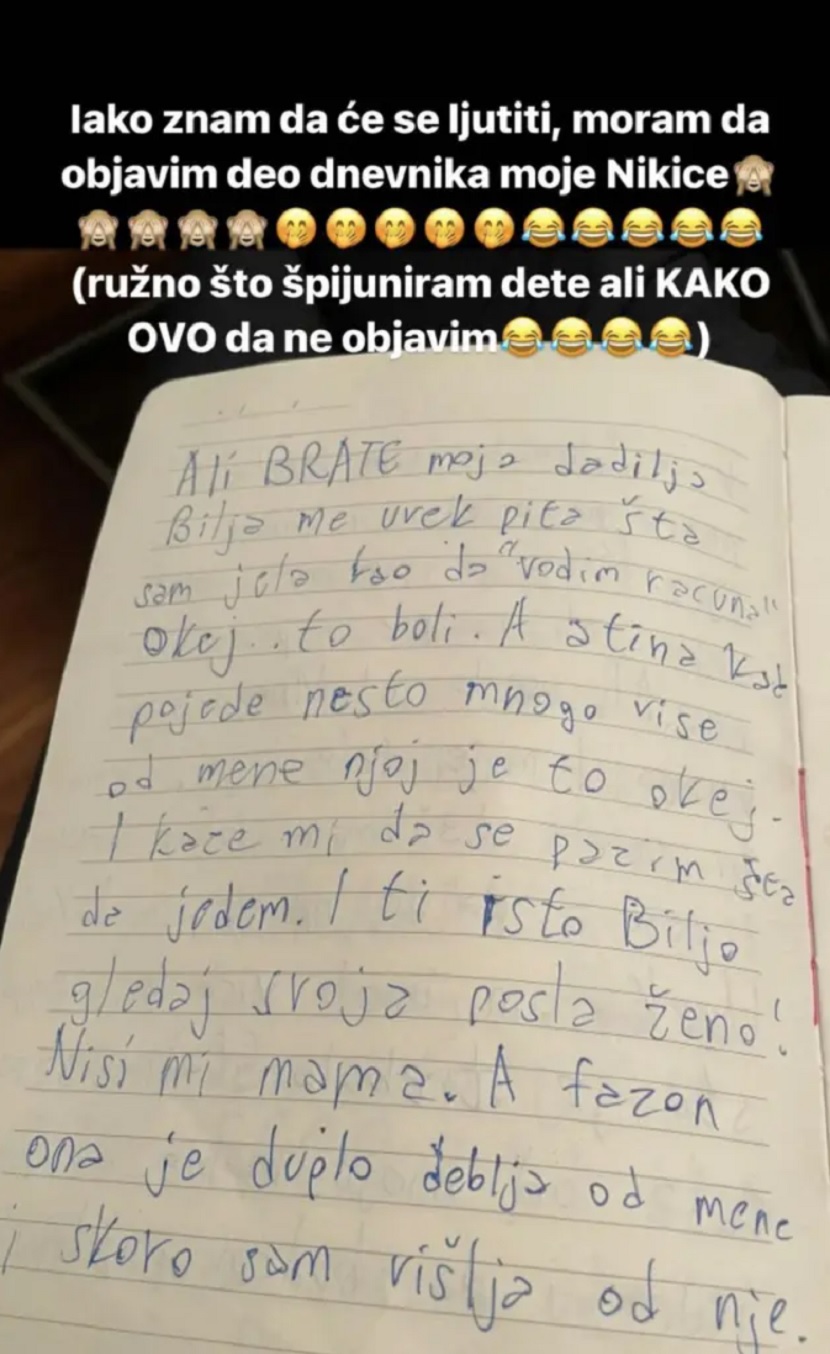 Iako znam da će se ljutiti, moram da
objavim deo dnevnika moje Nikice🙈
🙈🙈🙈🙈🤭🤭🤭🤭🤭😂😂😂😂😂
(ružno što špijuniram dete ali KAKO
OVO da ne objavim😂😂😂😂)
Ali BRATE moja dadilja
Bilja me uvek pita šta
sam jela kao da "vodim računa"
okej.. to boli. A stina kad
pojede nesto mnogo vise
od mene njoj je to okej.
I kaze mi da se pazim šta
da jedem. I ti isto Biljo
gledaj svoja posla ženo!
Nisi mi mama. A fazon
ona je duplo deblja od mene
i skoro sam višlja od nje.